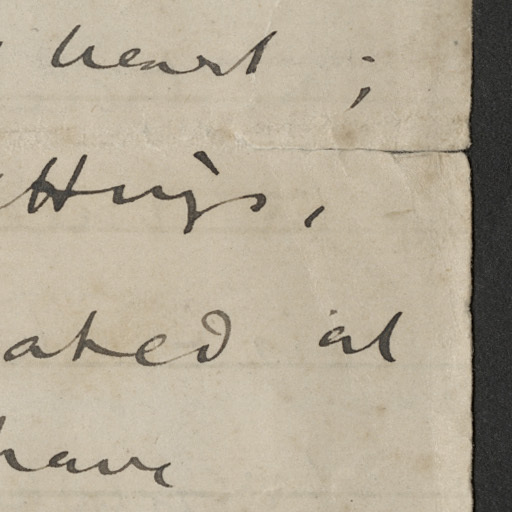 heart ;
ttings,
ated at
have